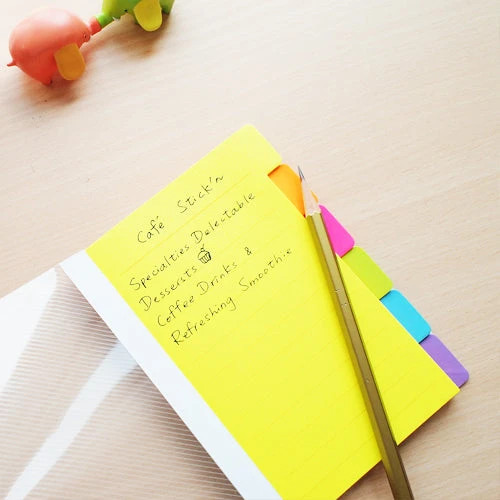 Café Stick'n
Specialties Delectable
Dessersts
Coffee Drinks &
Refreshing Smoothie